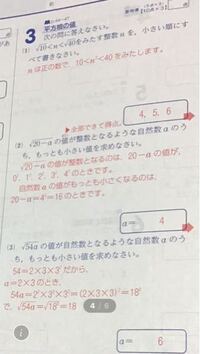 3 平方根の値
次の問に答えなさい。
(1) √10<n<√40をみたす整数nを，小さい順にすべて書きなさい。
nは正の数で，10<n²<40をみたします。
4, 5, 6
▶全部できて得点。
(2) √20-aの値が整数となるような自然数aのうち，もっとも小さい値を求めなさい。
√20-aの値が整数となるのは，20-aが，
0²，1²，2²，3²，4²のときです。
自然数aの値がもっとも小さくなるのは，
20-a=4²=16のときです。
a= 4
(3) √54aの値が自然数となるような自然数aのうち，もっとも小さい値を求めなさい。
54=2×3×3²だから，
a=2×3のとき，
54a=2²×3²×3²=(2×3×3)²=18²
で，√54a=√18²=18
4 / 6
a= 6